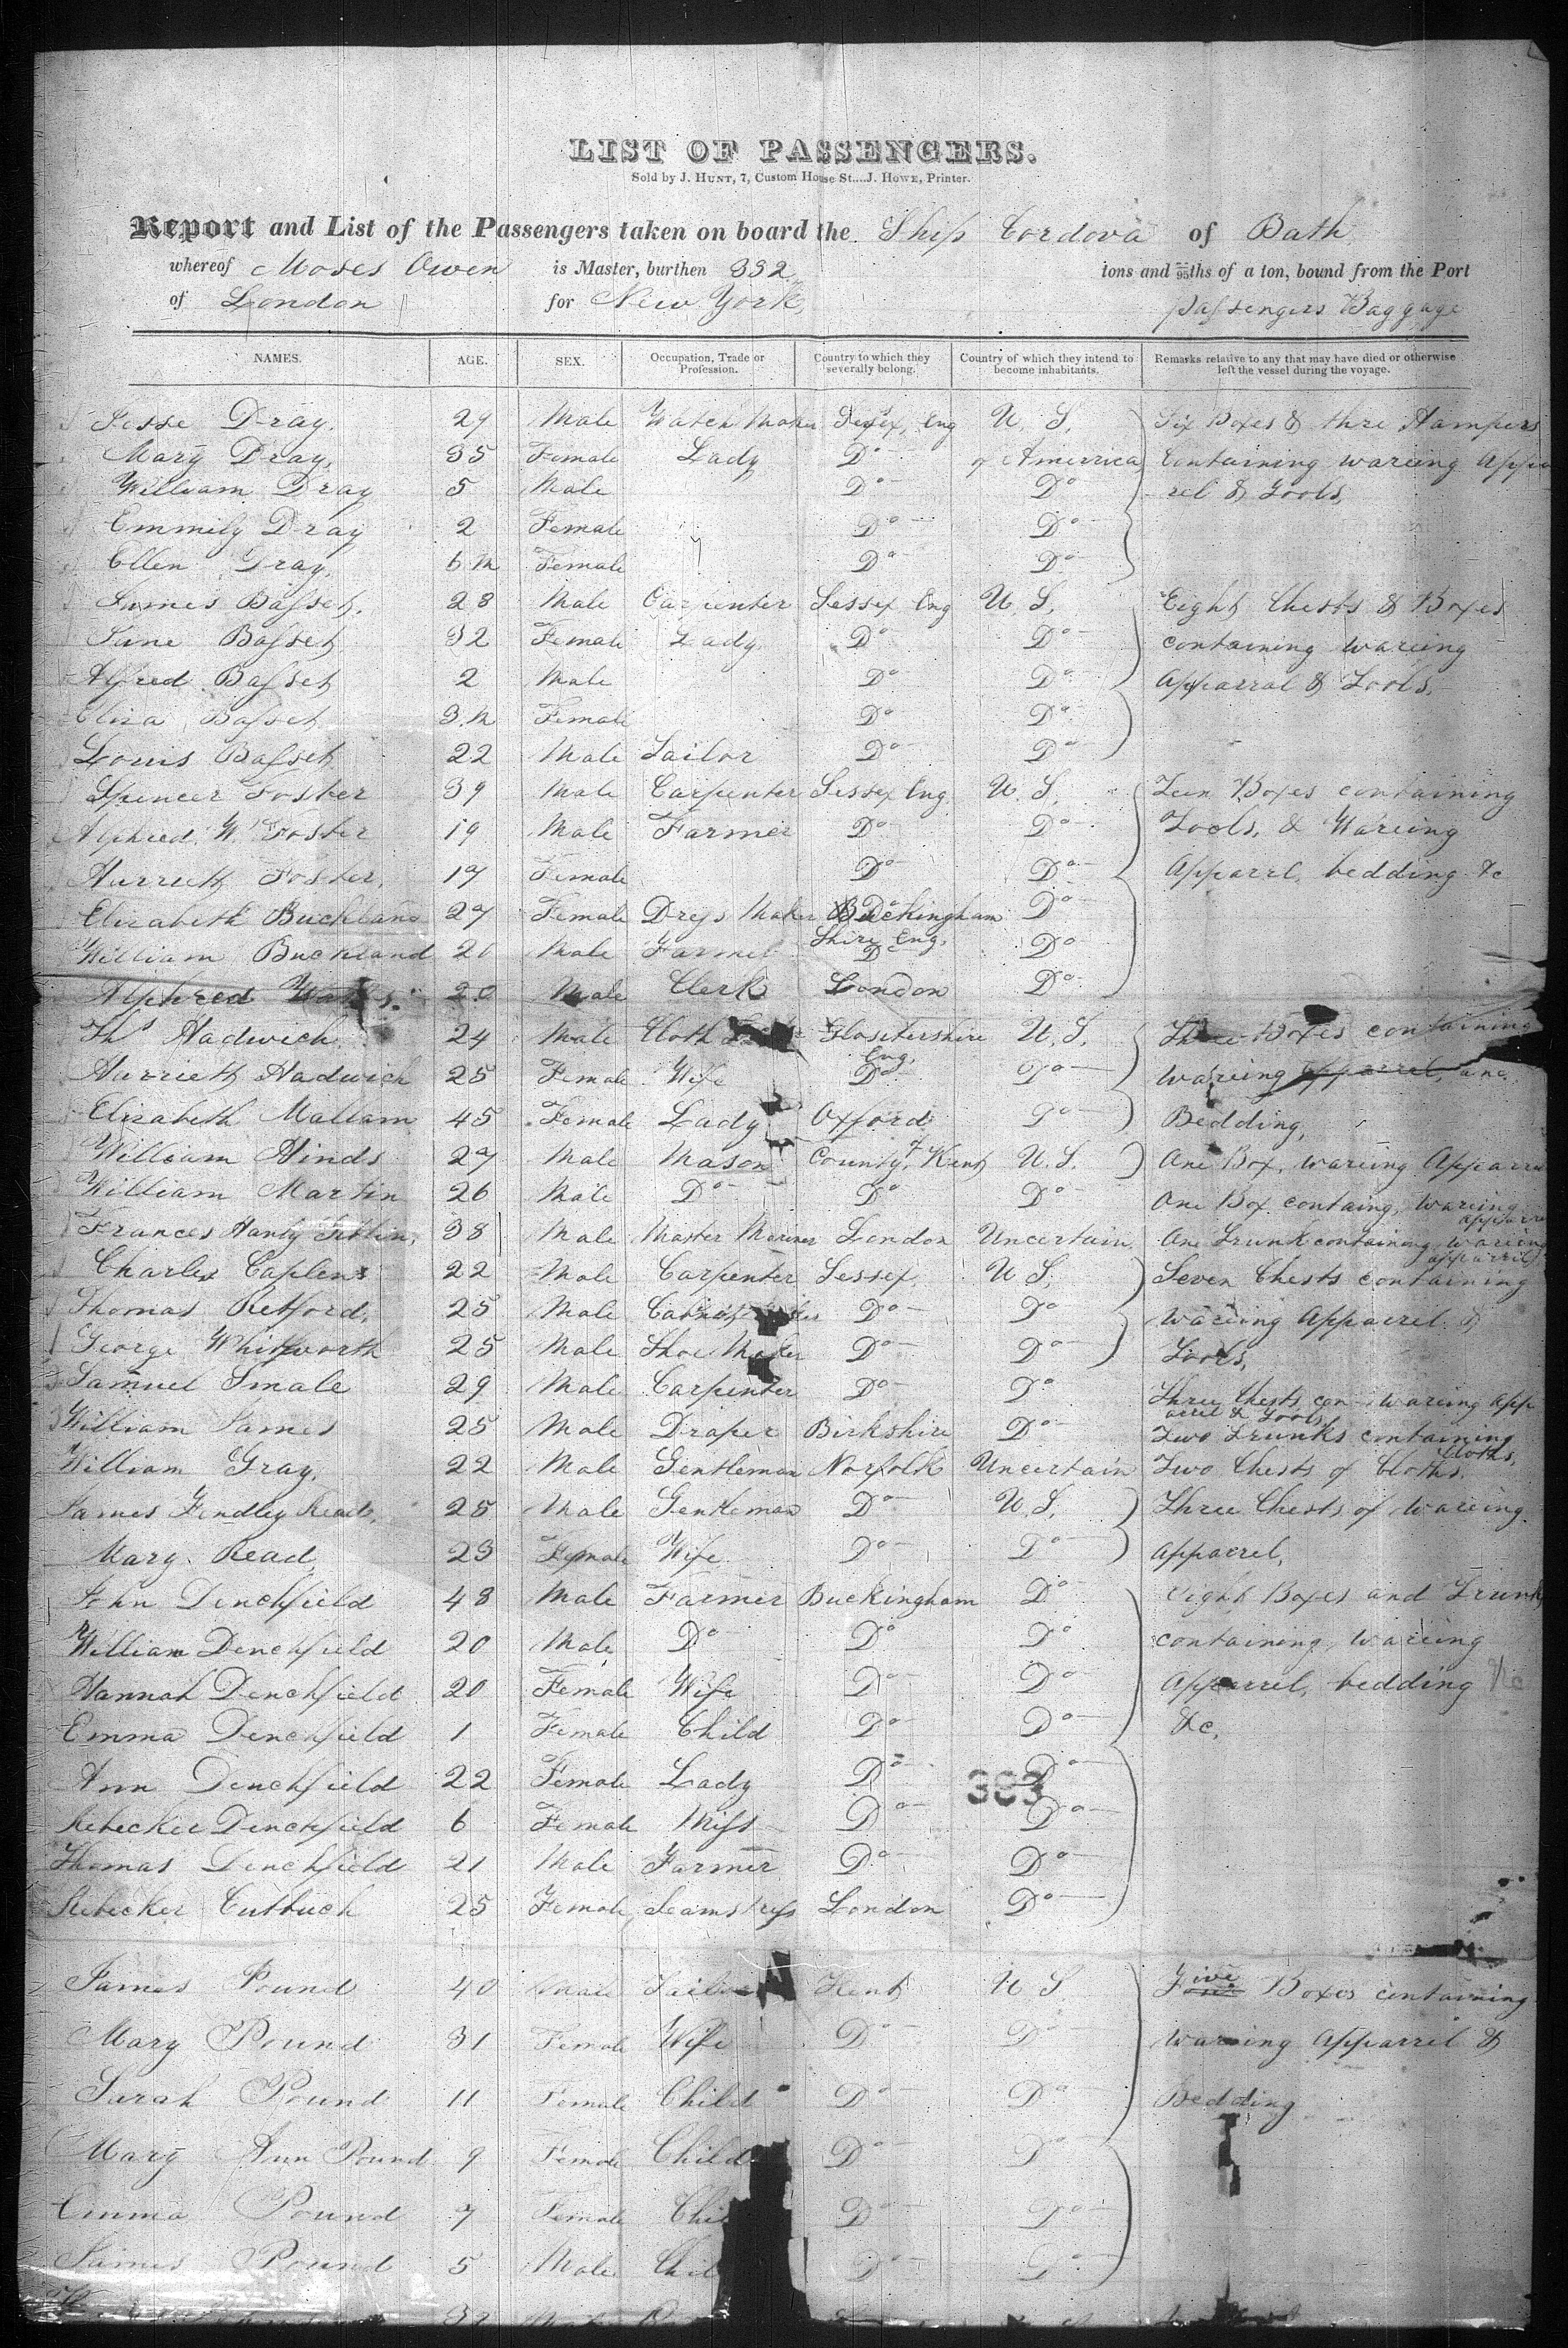 LIST OF PASSENGERS.
Sold by J. HUNT, 7, Custom House St....J. HOWE, Printer.
Report and List of the Passengers taken on board the Ship Cordova of Bath
whereof Moses Owen is Master, burthen 332 tons and 95ths of a ton, bound from the Port
of London for New York, passengers Baggage
NAMES. AGE. SEX. Occupation, Trade or Profession. Country to which they severally belong. Country of which they intend to become inhabitants. Remarks relative to any that may have died or otherwise left the vessel during the voyage.
Jesse Dray. 29 Male Watch Maker Eng U. S. Six Boxes & thre Hampers
Mary Dray, 35 Female Lady Do of Amerrica Containing wareing Appa
William Dray 5 Male Do Do rel & Tools,
Emmily Dray 2 Female Do Do
Ellen Dray, 6 m Female Do Do
James Basset, 28 Male Carpenter Sessex Eng U. S. Eight Chests & Boxes
Jane Basset 32 Female Lady Do Do containing wareing
Alfred Basset 2 Male Do Do Apparral & Tools,
Eliza Basset 3 m Female Do Do
Louis Basset 22 Male Tailor Do Do
Spencer Foster 39 Male Carpenter Sessex Eng U. S. Teen Boxes containing
Alphred W. Foster 19 Male Farmer Do Do Tools, & Wareing
Harriett Foster, 17 Female Do Do Apparrl, bedding &c
Elizabeth Buckland 27 Female Dress Maker Buckingham Do
William Buckland 20 Male Farmer Shire Eng. Do Do
Alphred 20 Male Clerk London Do
Ths Hadwich 24 Male Cloth Glosetershire Eng. U. S. Three Boxes containing
Harriett Hadwich 25 Female Wife Do Do wareing apparrel, and
Elizabeth Mallam 45 Female Lady Oxford Do Bedding,
William Hinds 27 Male Mason County of Kent U. S. One Box, wareing Apparre
William Martin 26 Male Do Do Do One Box containg, wareing apparre
Frances Hanty 38 Male Master Mariner London Uncertain One Trunk containing wareing apparril
Charles Caplens 22 Male Carpenter Sessex U S, Seven Chests containing
Thomas Retford, 25 Male Do Do wareing Apparrel &
George Whitworth 25 Male Shoe Maker Do Do Tools,
Samuel Smale 29 Male Carpenter Do Do Three Chests con wareing app arrel & Tools,
William James 25 Male Draper Birkshire Do Two Trunks containing Cloths,
William Gray, 22 Male Gentleman Norfolk Uncertain Two Chests of Cloths,
James Findley Read, 25 Male Gentleman Do U. S. Three Chests of wareing
Mary Read, 23 Female Wife Do Do apparrel,
John Denchfield 48 Male Farmer Buckingham Do Eight Boxes and Trunks
William Denchfield 20 Male Do Do Do containing, wareing
Hannah Denchfield 20 Female Wife Do Do Apparrel, bedding
Emma Denchfield 1 Female Child Do Do &c,
Ann Denchfield 22 Female Lady Do Do
383
Rebecker Denchfield 6 Female Miss Do Do
Thomas Denchfield 21 Male Farmer Do Do
Rebecker Cutbuch 25 Female Seamstress London Do
James Pound 40 Male Kent U S Five Boxes containing
Mary Pound 31 Female Wife Do Do wareing Apparril &
Sarah Pound 11 Female Child Do Do Bedding
Mary Ann Pound 9 Female Child Do Do
Emma Pound 7 Female Do Do
James Pound 5 Male Do Do